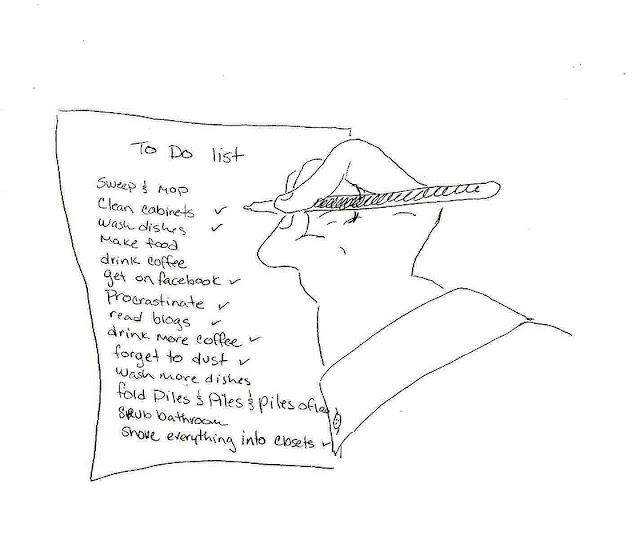 To Do list
Sweep & Mop
Clean cabinets ✓
Wash dishes ✓
Make food
drink coffee
get on facebook ✓
Procrastinate ✓
read blogs ✓
drink more coffee ✓
forget to dust ✓
Wash more dishes
fold Piles & Piles & piles of
Scrub bathroom
Shove everything into closets ✓